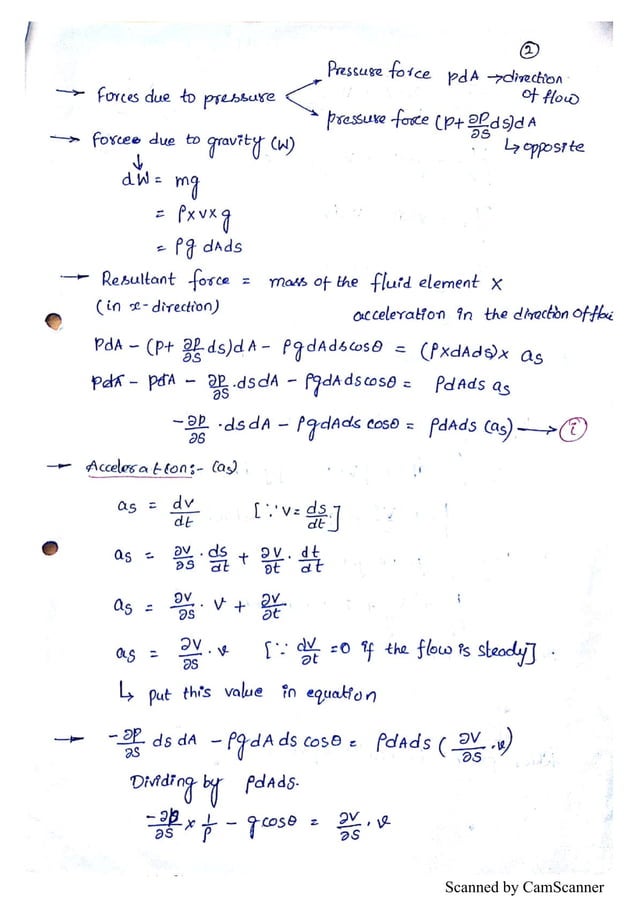 ②
→ Forces due to pressure < Pressure force pdA → direction of flow
pressure force (p+ ∂p/∂s ds)dA
↳ opposite
→ forces due to gravity (W)
↓
dW = mg
= ρ×v×g
= ρg dAds
— Resultant force = mass of the fluid element ×
(in x-direction) acceleration in the dirction of flow
PdA – (p+ ∂p/∂s ds)dA – ρgdAdscosθ = (ρ×dAds)× as
pdA – pdA – ∂p/∂s .dsdA – ρgdAdscosθ = ρdAds as
-∂p/∂s .dsdA – ρgdAds cosθ = ρdAds (as) → (i)
→ Acceleration:- (as)
as = dv/dt [∵ v = ds/dt]
as = ∂v/∂s . ds/dt + ∂v/∂t . dt/dt
as = ∂v/∂s . v + ∂v/∂t
as = ∂v/∂s . v [∵ dv/∂t =0 if the flow is steady] .
↳ put this value in equation
→ -∂p/∂s ds dA – ρgdAds cosθ = ρdAds (∂v/∂s .v)
Dividing by ρdAds.
-∂p/∂s × 1/ρ – gcosθ = ∂v/∂s . v
Scanned by CamScanner